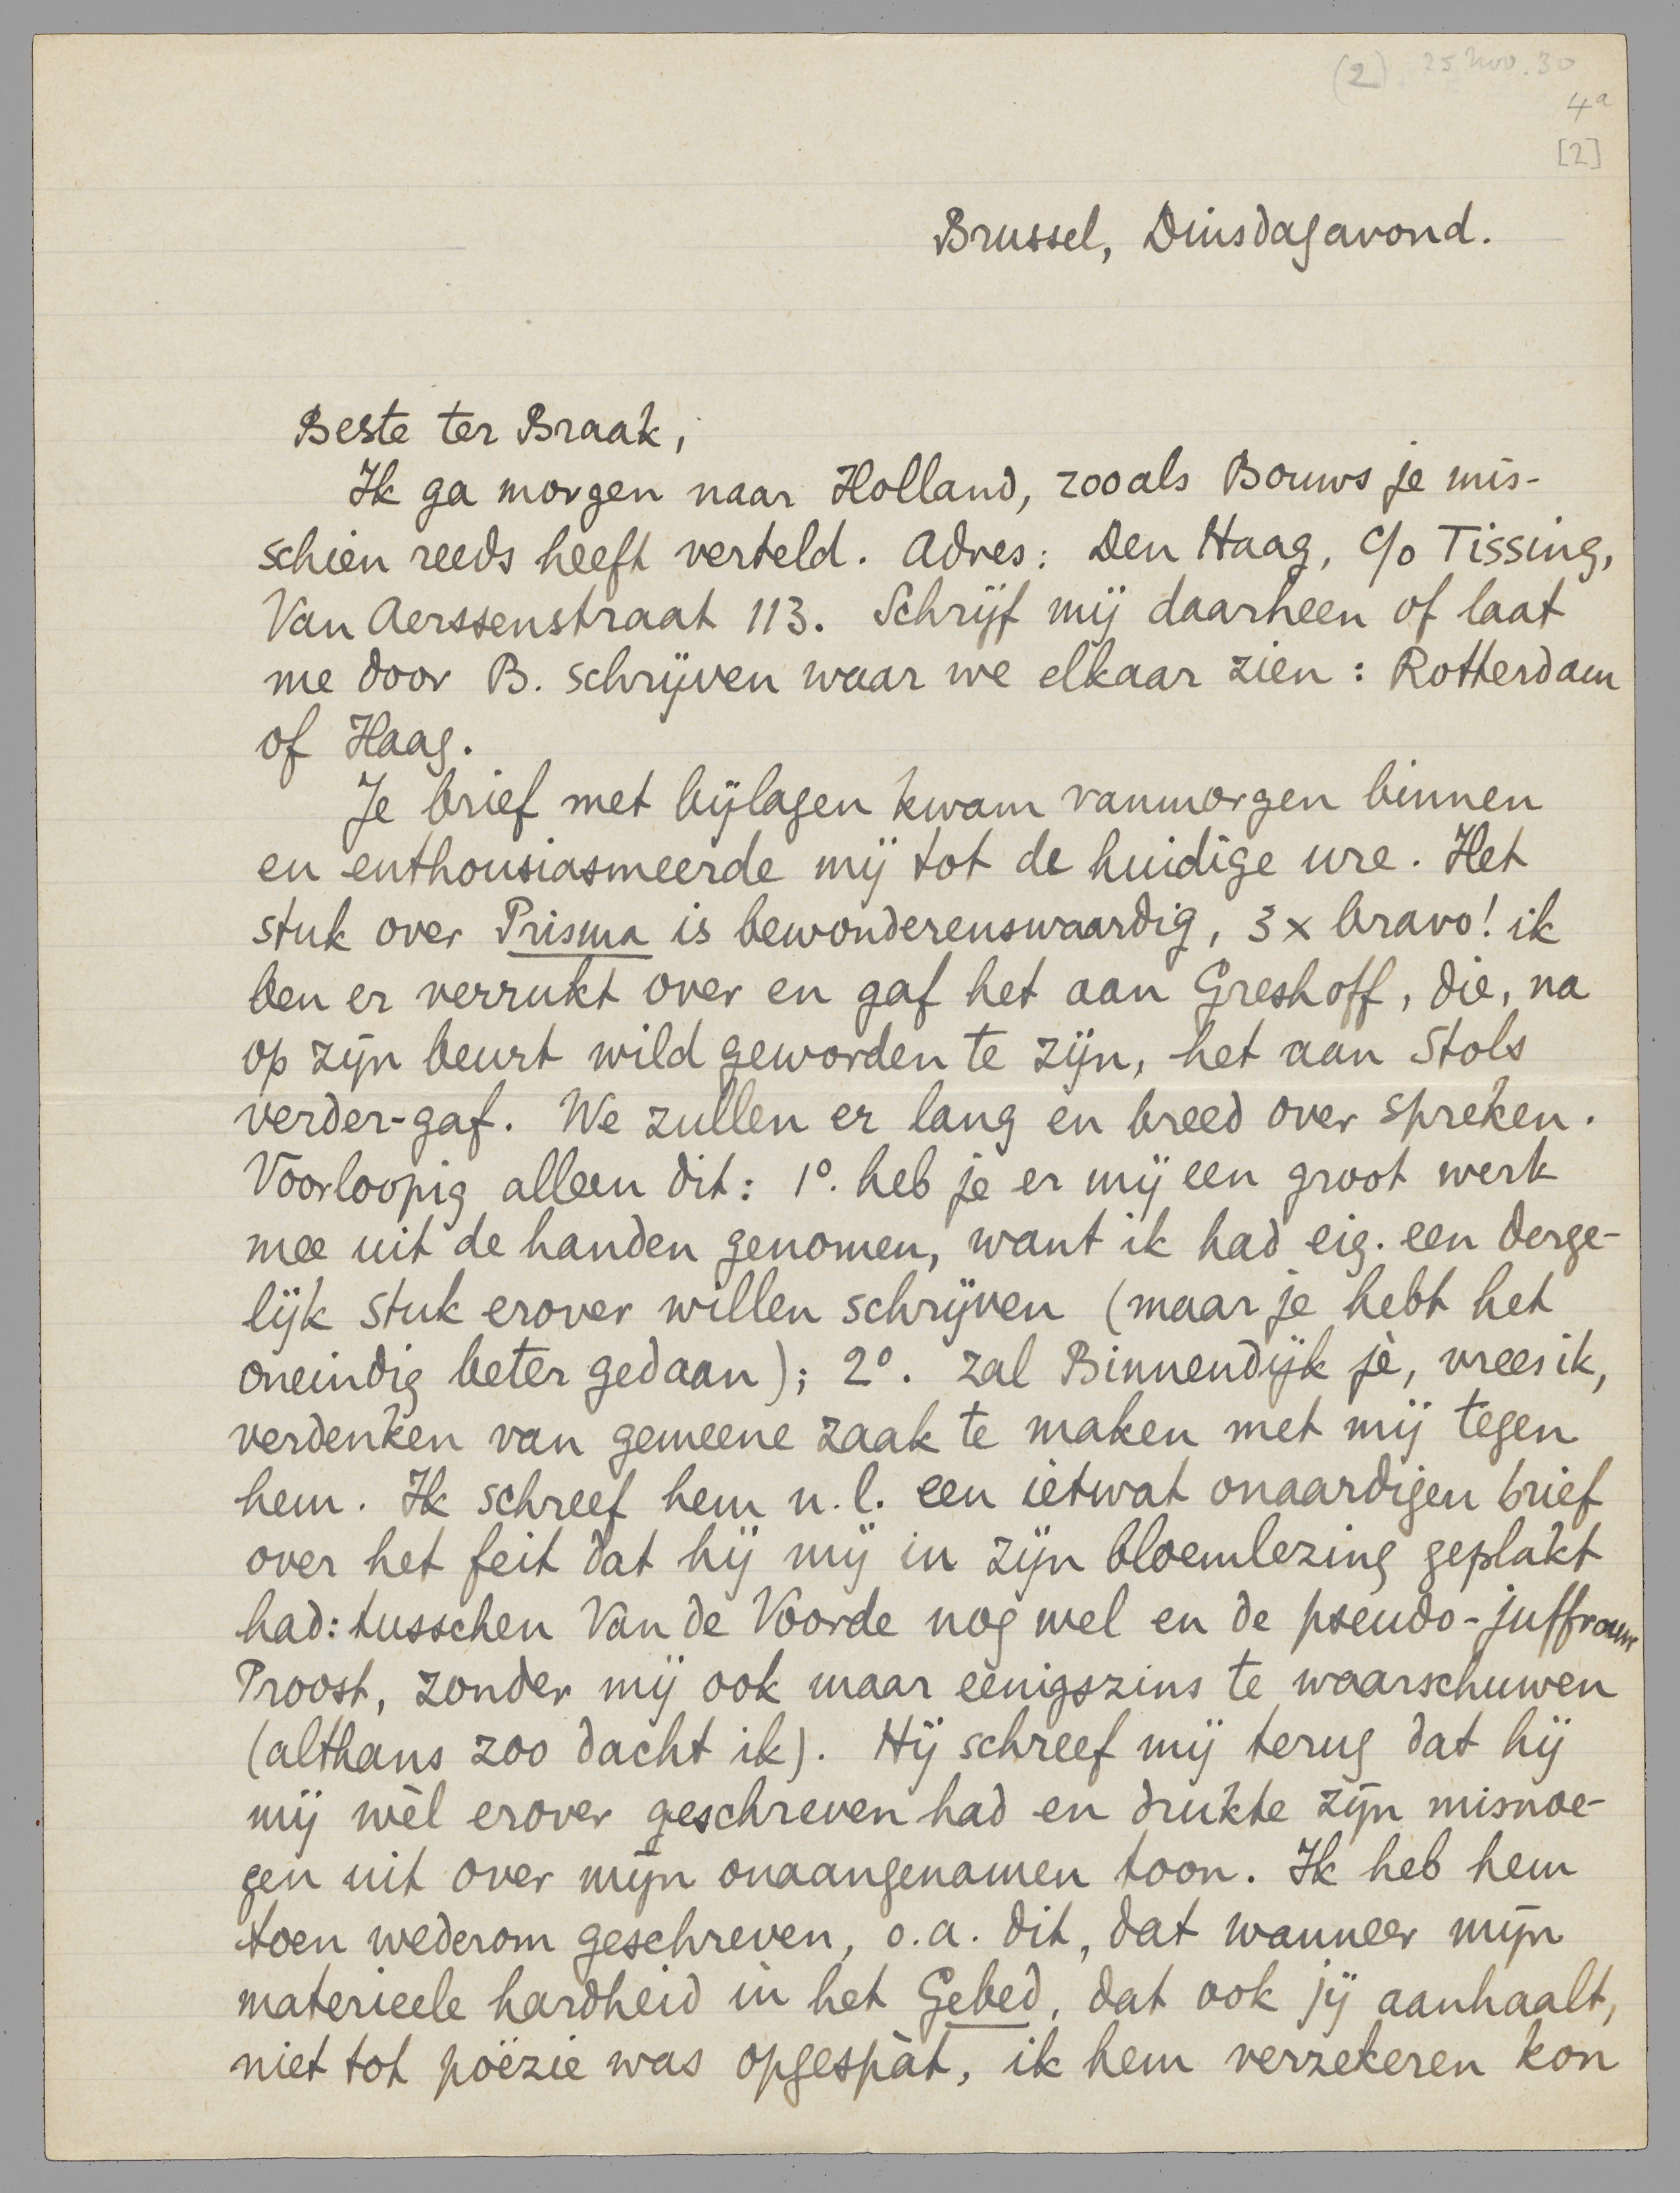 (2) 25 Nov. 30
4a
[2]
Brussel, Dinsdagavond.
Beste ter Braak,
Ik ga morgen naar Holland, zooals Bouws je mis-
schien reeds heeft verteld. Adres: Den Haag, c/o Tissing,
Van Aerssenstraat 113. Schrijf mij daarheen of laat
me door B. schrijven waar we elkaar zien: Rotterdam
of Haag.
Je brief met bijlagen kwam vanmorgen binnen
en enthousiasmeerde mij tot de huidige ure. Het
stuk over Prisma is bewonderenswaardig, 3 x bravo! ik
ben er verrukt over en gaf het aan Greshoff, die, na
op zijn beurt wild geworden te zijn, het aan Stols
verder-gaf. We zullen er lang en breed over spreken.
Voorloopig alleen dit: 1o. heb je er mij een groot werk
mee uit de handen genomen, want ik had eig. een derge-
lijk stuk erover willen schrijven (maar je hebt het
oneindig beter gedaan); 2o. zal Binnendijk je, vrees ik,
verdenken van gemeene zaak te maken met mij tegen
hem. Ik schreef hem n.l. een ietwat onaardigen brief
over het feit dat hij mij in zijn bloemlezing geplakt
had: tusschen Van de Voorde nog wel en de pseudo-juffrouw
Proost, zonder mij ook maar eenigszins te waarschuwen
(althans zoo dacht ik). Hij schreef mij terug dat hij
mij wèl erover geschreven had en drukte zijn misnoe-
gen uit over mijn onaangenamen toon. Ik heb hem
toen wederom geschreven, o.a. dit, dat wanneer mijn
materieele hardheid in het Gebed, dat ook jij aanhaalt,
niet tot poëzie was opgespàt, ik hem verzekeren kon